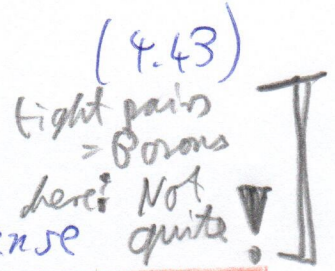 (4.43)
tight pairs
= Bosons
here: Not
quite !
nse